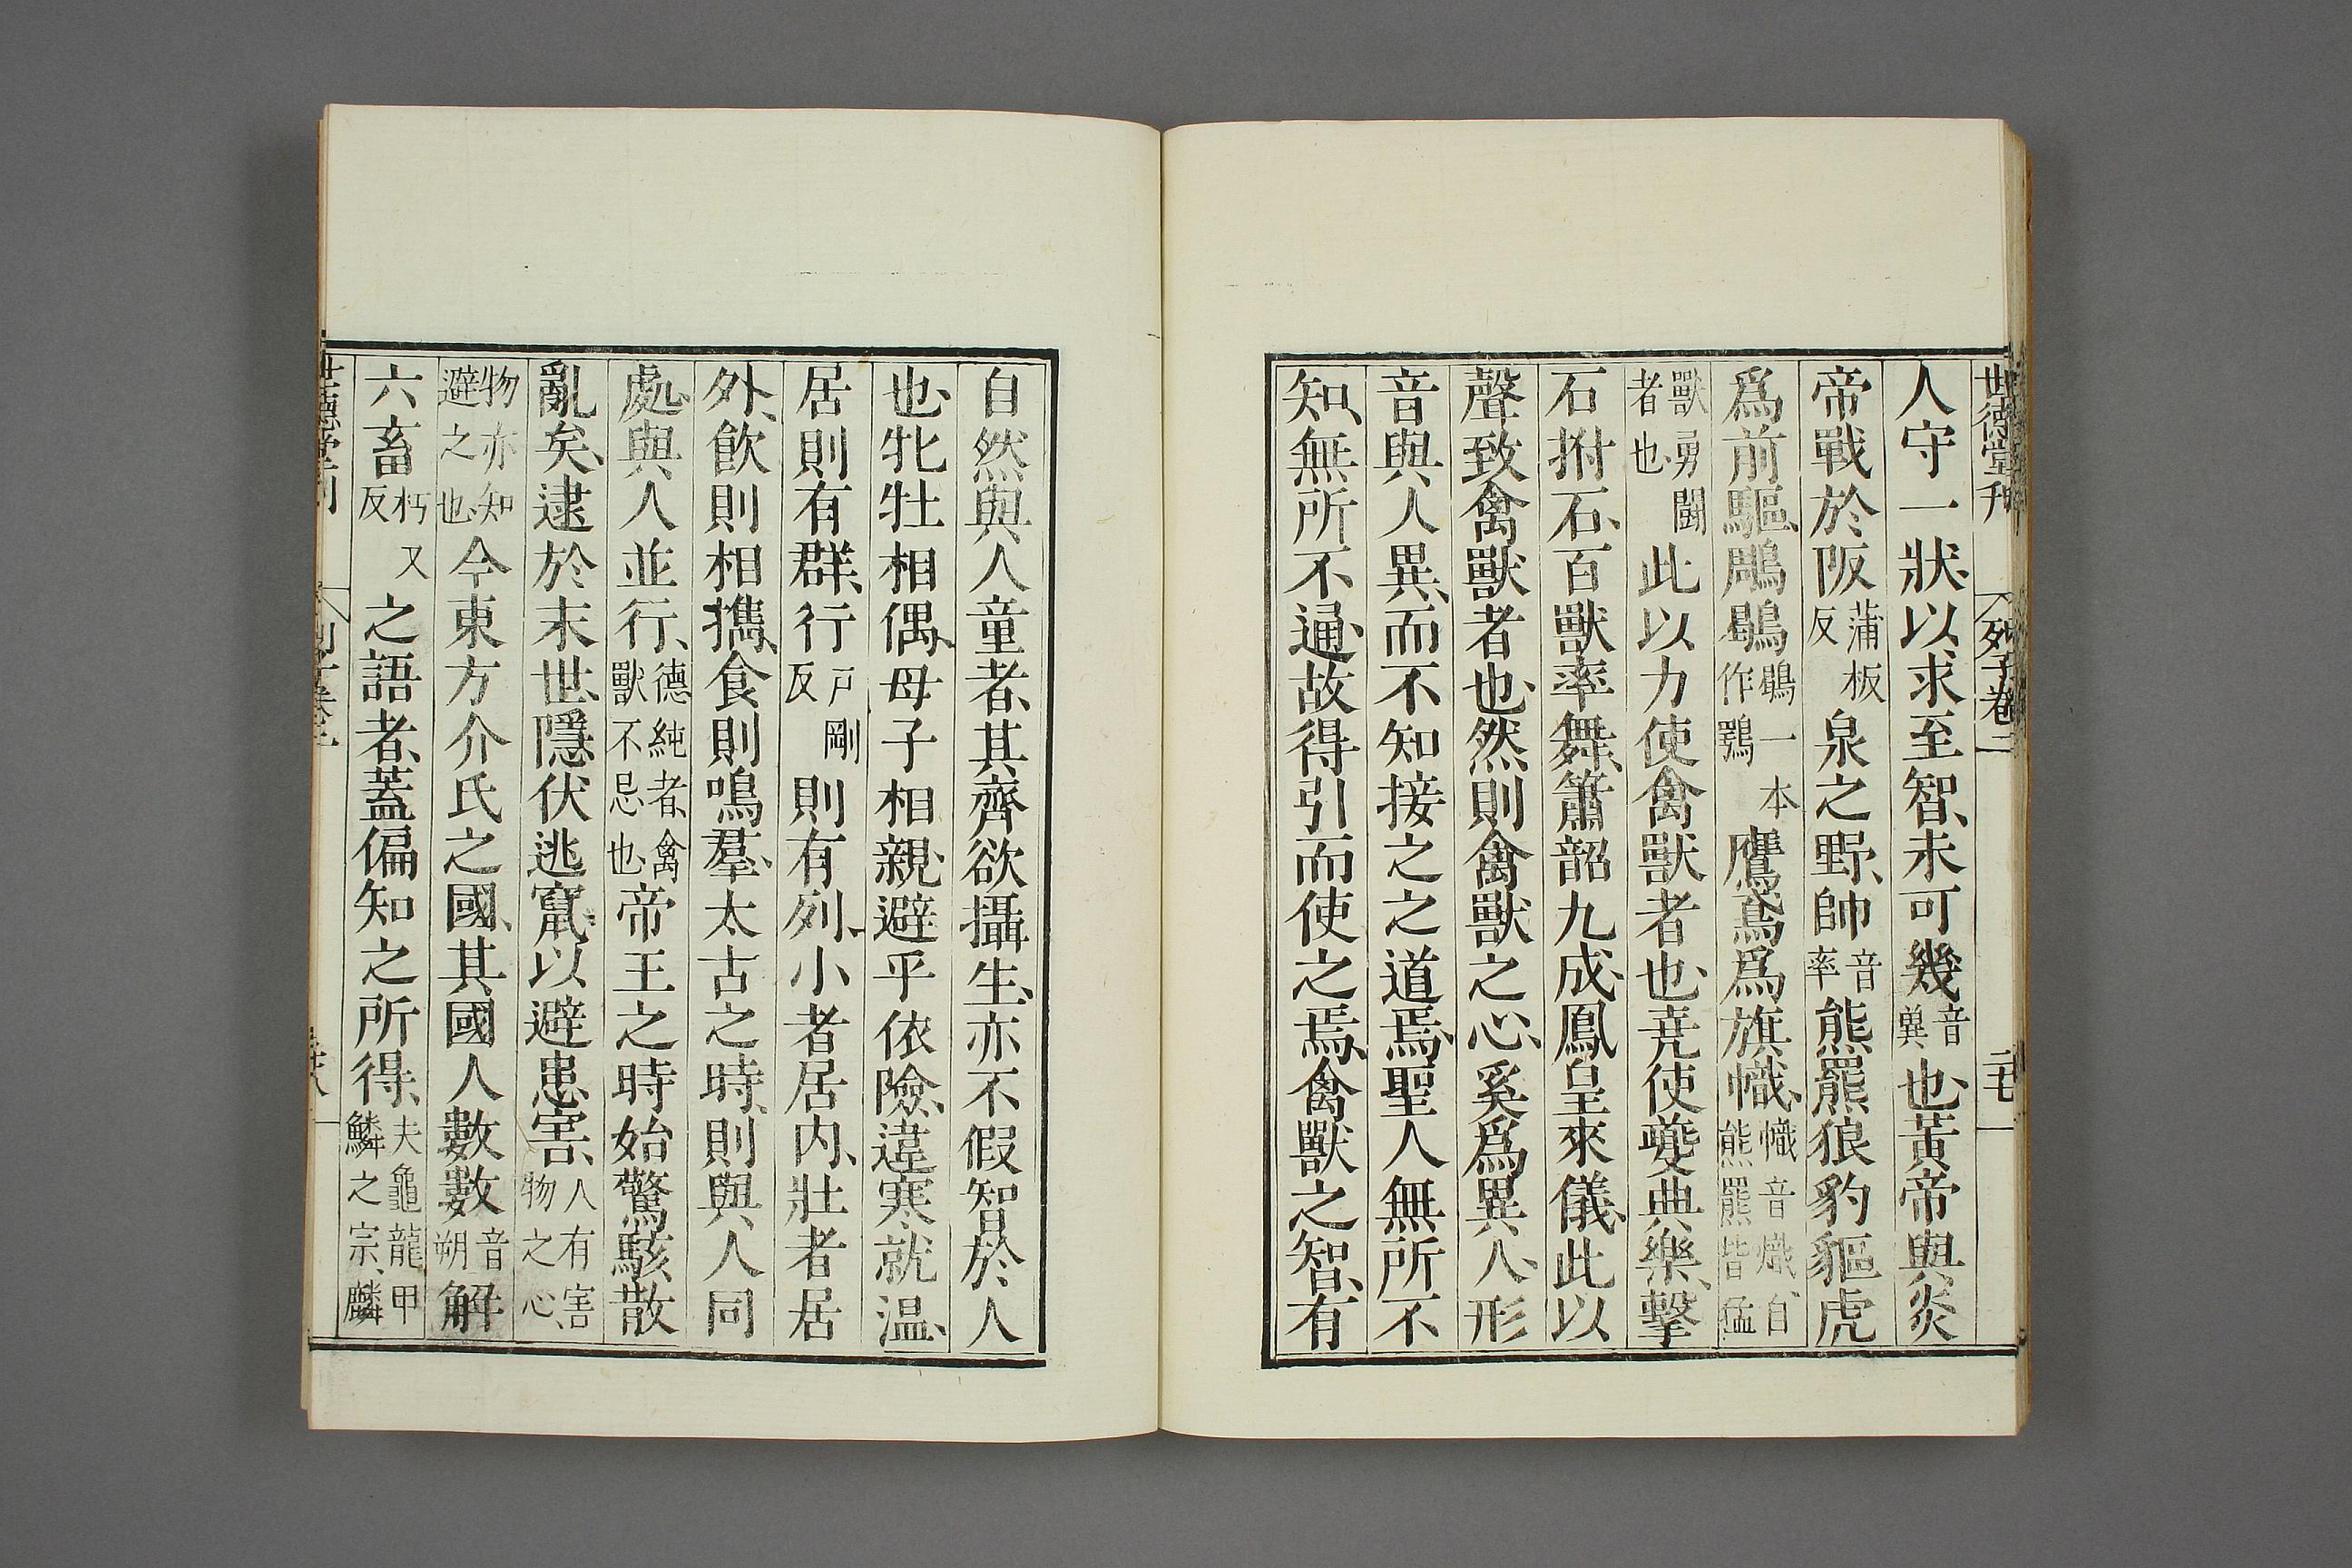 世德堂刊
列子卷二
二七
人守一狀以求至智未可幾音冀也黃帝與炎
帝戰於阪蒲板反泉之野帥音率熊羆狼豹貙虎
爲前驅鵰鶡鶡一本作鶚鷹鳶爲旗幟幟音熾自熊羆皆猛
獸勇鬭者也此以力使禽獸者也堯使夔典樂擊
石拊石百獸率舞簫韶九成鳳皇來儀此以
聲致禽獸者也然則禽獸之心奚爲異人形
音與人異而不知接之之道焉聖人無所不
知無所不通故得引而使之焉禽獸之智有
自然與人童者其齊欲攝生亦不假智於人
也牝牡相偶母子相親避平依險違寒就温
居則有群行戶剛反則有列小者居内壯者居
外飲則相攜食則鳴羣太古之時則與人同
處與人並行德純者禽獸不忌也帝王之時始驚駭散
亂矣逮於末世隱伏逃竄以避患害人有害物之心
物亦知避之也今東方介氏之國其國人數數音朔解
六畜朽又反之語者蓋偏知之所得夫龜龍甲鱗之宗麟